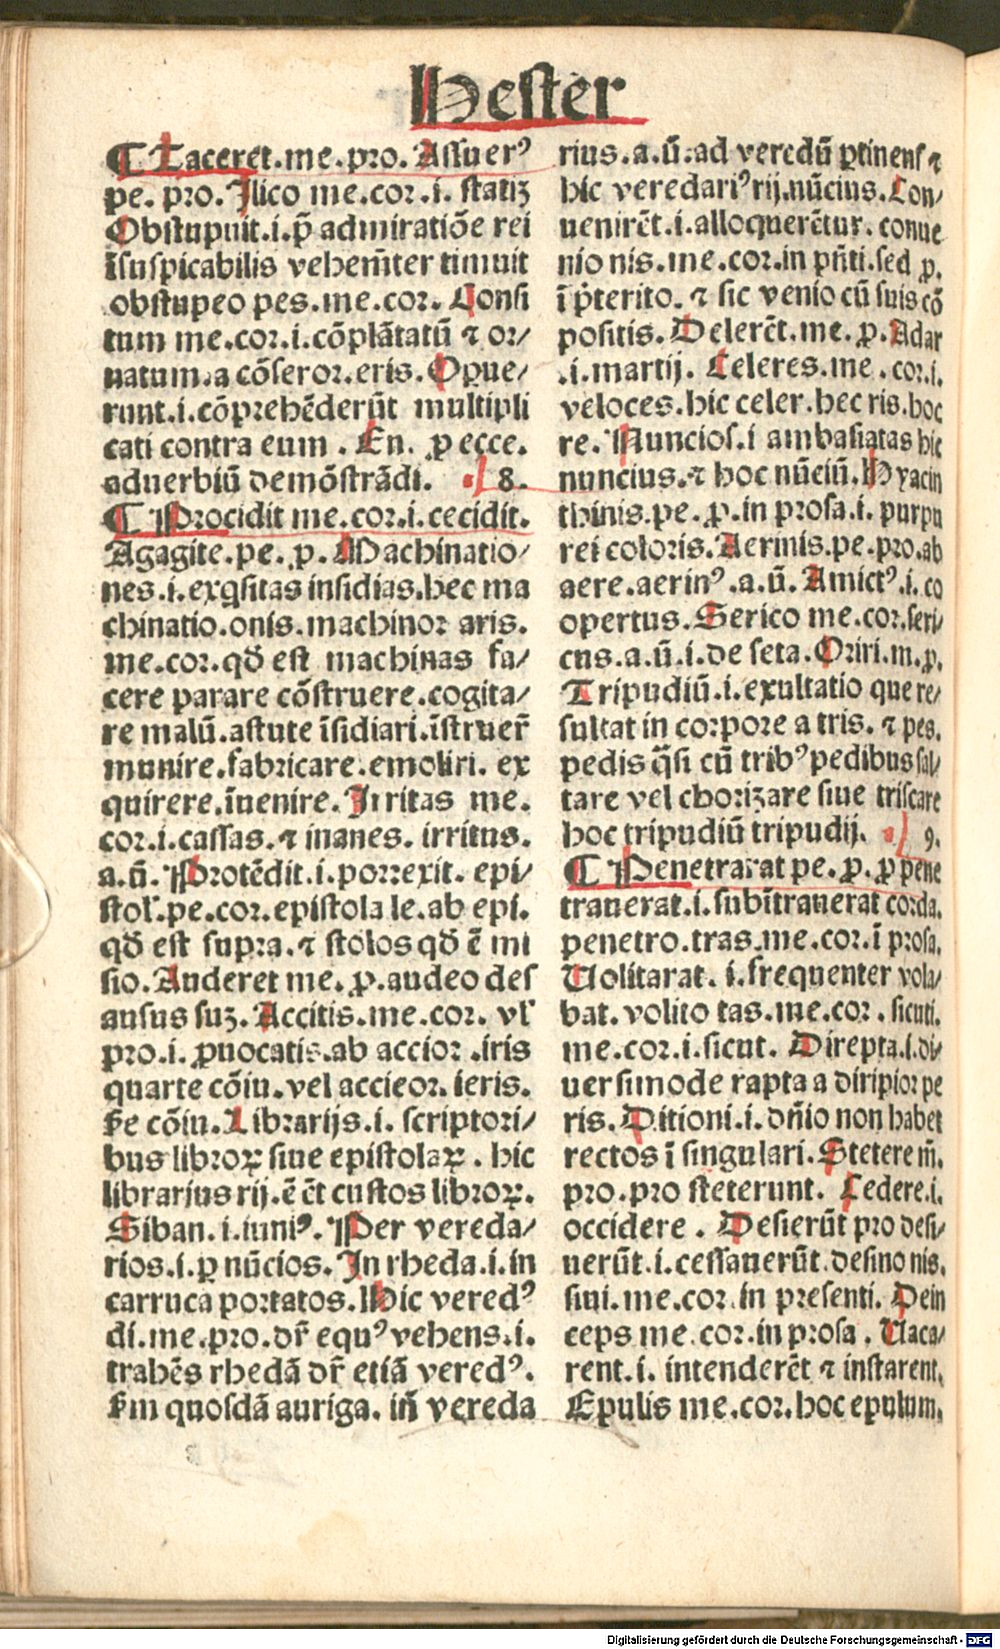 Hester
¶ Taceret.me.pro. Assuerꝰ
pe. pro. Jlico me.cor.i. statiʒ
Obstupuit.i.p̄ admiratiōe rei
īsuspicabilis vehem̄ter timuit
obstupeo pes.me.cor. Consi
tum me.cor.i.cōplātatū ⁊ or/
natum.a cōseror.eris. Oꝑue/
runt.i.cōprehēderūt multipli
cati contra eum . En. ꝓ ecce.
aduerbiū demōstrādi. 8.
¶ Procidit me.cor.i.cecidit.
Agagite.pe. ꝓ. Machinatio/
nes.i.exqsitas insidias.hec ma
chinatio.onis.machinor aris.
me.cor.qđ est machinas fa/
cere parare cōstruere.cogita/
re malū.astute īsidiari.īstruer̄
munire.fabricare.emoliri. ex
quirere.īuenire. Jrritas me.
cor.i.cassas.⁊ inanes. irritus.
a.ū. Protēdit.i.porrexit. epi/
stoł.pe.cor.epistola le.ab epi.
qđ est supra.⁊ stolos qđ ē mi
sio. Auderet me. ꝓ.audeo des
ausus suʒ. Accitis.me.cor. vł
pro.i. ꝓuocatis.ab accior .iris
quarte cōiu.vel accieor. ieris.
ẜe cōiu. Librarijs.i. scriptori/
bus libroꝝ siue epistolaꝝ . hic
librarius rij.ē ēt custos libroꝝ.
Siban.i.iuniꝰ. Per vereda/
rios.i.ꝑ nūcios. Jn rheda.i.in
carruca portatos. Hic veredꝰ
di.me.pro.dr̄ equꝰ vehens.i.
trahēs rhedā dr̄ etiā veredꝰ.
ẜm quosdā auriga. iñ vereda
rius.a.ū.ad veredū ꝑtinens ⁊
hic veredariꝰ rij.nūcius. Con/
uenirēt.i.alloquerētur. conue
nio nis.me.cor.in pn̄ti.sed ꝓ.
ī p̄terito. ⁊ sic venio cū suis cō
positis. Delerēt.me. ꝓ. Adar
.i.martij. Celeres.me.cor.i.
veloces.hic celer.hec ris.hoc
re. Nuncios.i ambasiatas hic
nuncius.⁊ hoc nūciū. Hyacin
thinis.pe. ꝓ.in prosa.i. purpu
rei coloris. Aerinis.pe.pro.ab
aere.aerinꝰ.a.ū. Amictꝰ.i.co
opertus. Serico me.cor.seri/
cus.a.ū.i.de seta. Oriri.m.ꝓ.
Tripudiū.i.exultatio que re/
sultat in corpore a tris. ⁊ pes.
pedis q̄si cū tribꝰ pedibus sal/
tare vel chorizare siue triscare
hoc tripudiū tripudij. 9.
¶ Penetrarat pe. ꝓ. ꝓ pene
trauerat.i.subītrauerat corda.
penetro.tras.me.cor.ī prosa.
Uolitarat. i.frequenter vola/
bat. volito tas.me.cor. sicuti.
me.cor.i.sicut. Direpta.i.di/
uersimode rapta a diripior pe
ris. Ditioni.i.dn̄io non habet
rectos ī singulari. Stetere m̄.
pro.pro steterunt. Cedere.i.
occidere . Desierūt pro desi/
uerūt.i.cessauerūt.desino nis.
siui.me.cor.in presenti. Dein
ceps me.cor.in prosa . Uaca/
rent.i. intenderēt ⁊ instarent.
Epulis me.cor.hoc epulum.
Digitalisierung gefördert durch die Deutsche Forschungsgemeinschaft - DFG